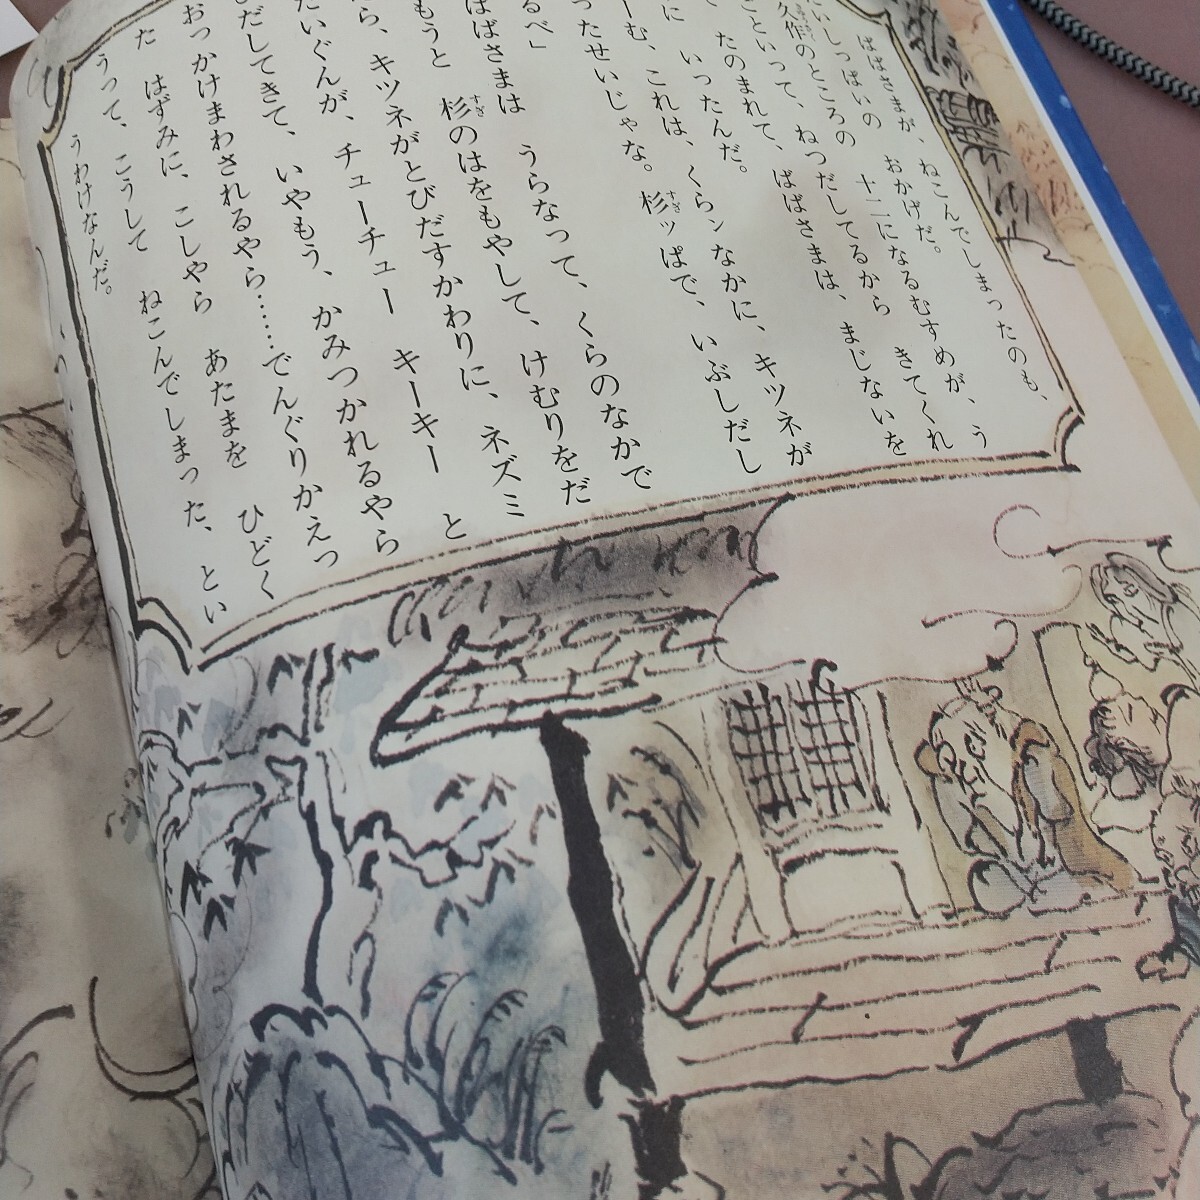 ばばさまが、ねこんでしまったのも、
たいしっぱいの　おかげだ。
久作のところの　十二になるむすめが、う
ことといって、ねつだしてるから　きてくれ
たのまれて、ばばさまは、まじないを
に　いったんだ。
む、これは、くらンなかに、キツネが
ったせいじゃな。杉ッぱで、いぶしだし
るべ」
ばばさまは　うらなって、くらのなかで
もうと　杉のはをもやして、けむりをだ
ら、キツネがとびだすかわりに、ネズミ
たいぐんが、チューチュー　キーキー　と
だしてきて、いやもう、かみつかれるやら
おっかけまわされるやら……でんぐりかえっ
た　はずみに、こしやら　あたまを　ひどく
うって、こうして　ねこんでしまった、とい
うわけなんだ。